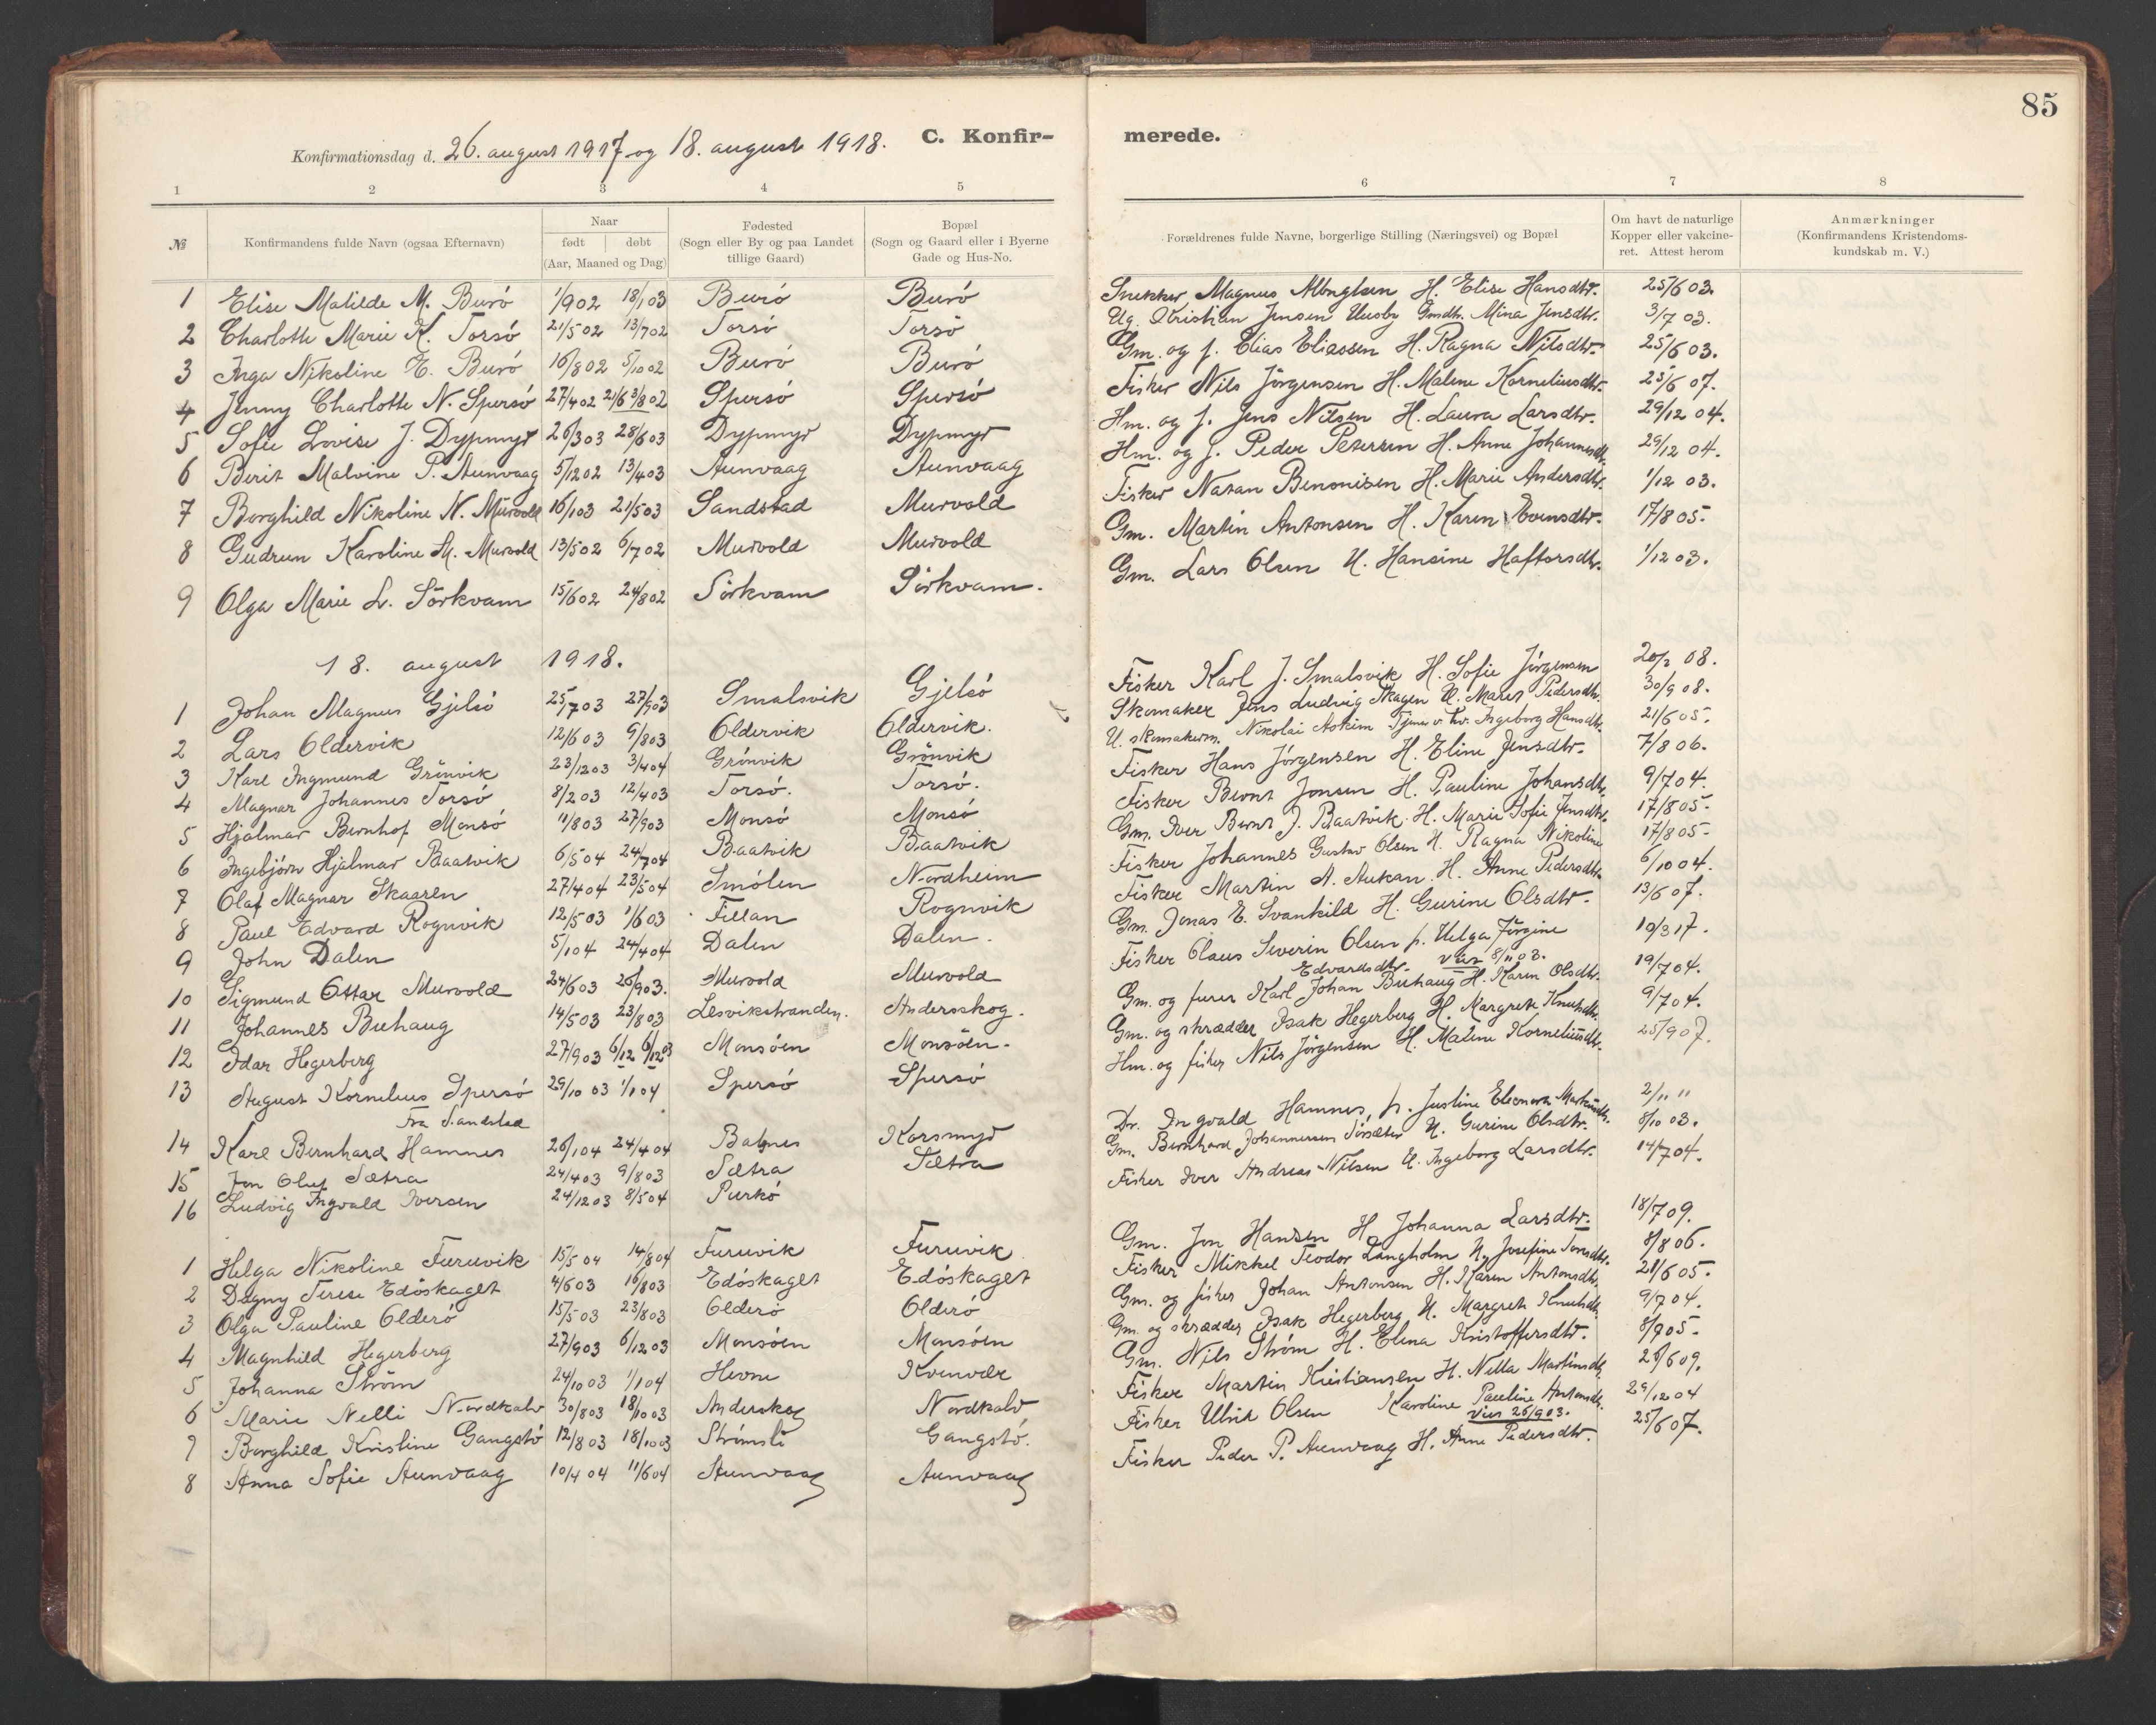 85
C. Konfir-
merede.
Konfirmationsdag d. 26. august 1917 og 18. august 1918.
1 2 3 4 5 6 7 8
№
Konfirmandens fulde Navn (ogsaa Efternavn)
Naar
født døbt
(Aar, Maaned og Dag)
Fødested
(Sogn eller By og paa Landet
tillige Gaard)
Bopæl
(Sogn og Gaard eller i Byerne
Gade og Hus-No.
Forældrenes fulde Navne, borgerlige Stilling (Næringsvei) og Bopæl
Om havt de naturlige
Kopper eller vakcine-
ret. Attest herom
Anmærkninger
(Konfirmandens Kristendoms-
kundskab m. V.)
1 Elise Matilde M. Burö 1/9 02 18/1 03 Burö Burö Snekker Magnus H. Elise Hansdtr. 25/6 03.
2 Charlotte Marie K. Torsö 21/5 02 13/7 02 Torsö Torsö Ug. Kristian Jensen Uusby Gmdtr. Mina Jensdtr. 3/7 03.
3 Inga Nikoline E. Burö 16/8 02 5/10 02 Burö Burö Gm. og f. Elias Eliassen H. Ragna Nilsdtr. 25/6 03.
4 Jenny Charlotte N. Spersö 27/4 02 21/6 3/8 02 Spersö Spersö Fisker Nils Jörgensen H. Malene Korneliusdtr. 25/6 07.
5 Sofie Lovise J. Dypmyr 26/3 03 28/6 03 Dypmyr Dypmyr Hm. og f. Jens Nilsen H. Laura Larsdtr. 29/12 04.
6 Berit Malvine P. Aunvaag 5/12 02 13/4 03 Aunvaag Aunvaag Hm. og f. Peder Petersen H. Anne Johannesdtr. 29/12 04.
7 Borghild Nikoline N. Murvold 16/1 03 21/5 03 Sandstad Murvold Fisker Natan Benonisen H. Marie Andersdtr. 1/12 03.
8 Gudrun Karoline M. Murvold 13/5 02 6/7 02 Murvold Murvold Gm. Martin Antonsen H. Karen Evensdtr. 17/8 05.
9 Olga Marie L. Sörkvam 15/6 02 24/8 02 Sörkvam Sörkvam. Gm. Lars Olsen H. Hansine Haftorsdtr. 1/12 03.
18. august 1918.
1 Johan Magnus Gjelsö 25/7 03 27/9 03 Smalsvik Gjelsö Fisker Karl J. Smalsvik H. Sofie Jörgensen 20/2 08.
2 Lars Oldervik 12/6 03 9/8 03 Oldervik Oldervik. Skomaker Jens Ludvig Skagen H. Maret Pedersdtr. 30/9 08.
3 Karl Ingmund Grönvik 23/12 03 3/4 04 Grönvik Grönvik U. skomakersv. Nikolai Askim Tjener v. kv. Ingeborg Hansdtr. 21/6 05.
4 Magnar Johannes Torsö 8/2 03 12/4 03 Torsö. Torsö. Fisker Hans Jörgensen H. Eline Jensdtr. 7/8 06.
5 Hjalmar Bernhof Monsö 11/8 03 27/9 03 Monsö Monsö Fisker Bernt Jonsen H. Pauline Johansdtr. 9/7 04.
6 Ingebjörn Hjalmar Baatvik 6/5 04 24/7 04 Baatvik Baatvik Gm. Iver Bernt J. Baatvik H. Marie Sofie Jensdtr. 17/8 05.
7 Olaf Magnar Skaaren 27/4 04 23/5 04 Smölen Nordheim Fisker Johannes Gustav Olsen H. Ragna Nikoline 17/8 05.
8 Paul Edvard Rognvik 12/5 03 1/6 03 Fillan Rognvik Fisker Martin A. Aukan H. Anne Pedersdtr. 6/10 04.
9 John Dalen 5/1 04 24/4 04 Dalen Dalen. Gm. Jonas E. Svankild H. Gurine Olsdtr. 13/6 07.
10 Sigmund Ottar Murvold 24/6 03 20/9 03. Murvold Murvold Fisker Olaus Severin Olsen p. Helga Jörgine 10/3 17.
Edvardsdtr. vier 8/11 03.
11 Johannes Buhaug 14/5 03 23/8 03 Lesvikstranden. Andersskog. Gm. og furer Karl Johan Buhaug H. Karen Olsdtr. 19/7 04.
12 Idar Hegerberg 27/9 03 6/12 6/12 03 Monsöen Monsöen. Gm. og skrædder Isak Hegerberg H. Margrete Knutsdtr. 9/7 04.
13 August Kornelius Spersö 29/10 03 1/1 04 Spersö Spersö Hm. og fisker Nils Jörgensen H. Malene Korneliusdtr. 25/9 07.
Fra Sandstad
14 Karl Bernhard Hamnes 26/1 04 24/4 04 Balsnes Korsmyr Dr. Ingvald Hamnes, p. Justine Eleonora Markusdtr. 2/11 11
15 Jon Olaf Sætra 24/4 03 9/8 03 Sætra Sætra Gm. Bernhard Johannessen Sörsæter H. Gurine Olsdtr. 8/10 03.
16 Ludvig Ingvald Iversen 24/12 03 8/5 04 Purkö Fisker Iver Andreas Nilsen H. Ingeborg Larsdtr. 14/7 04.
1 Helga Nikoline Furuvik 15/5 04 14/8 04 Furuvik Furuvik Gm. Jon Hansen H Johanna Larsdtr. 18/7 09.
2 Dagny Terese Edöskaget 4/6 03 16/8 03 Edöskaget Edöskaget Fisker Mikkel Teodor Langholm H. Josefine Tomsdtr. 8/8 06.
3 Olga Pauline Olderö 15/5 03 23/8 03 Olderö Olderö Gm. og fisker Johan Antonsen H. Karen Antonsdtr. 21/6 05.
4 Magnhild Hegerberg 27/9 03 6/12 03 Monsöen Monsöen Gm. og skrædder Isak Hegerberg H. Margrete Knutsdtr. 9/7 04.
5 Johanna Ström 24/10 03 1/1 04 Hevne Kvenvær Gm. Nils Ström H. Elena Kristoffersdtr. 8/9 05.
6 Marie Nelli Nordkalv 30/8 03 18/10 03 Anderskog Nordkalv Fisker Martin Kristiansen H. Nella Martinsdtr. 26/6 09.
7 Borghild Kristine Gangstö 12/8 03 18/10 03 Strömsli Gangstö. Fisker Ulrik Olsen Karoline Pauline Antonsdtr. 29/12 04
vier 26/9 03.
8 Anna Sofie Aunvaag 10/4 04 11/6 04 Aunvaag Aunvaag Fisker Peder P. Aunvaag H. Anne Pedersdtr. 25/6 07.